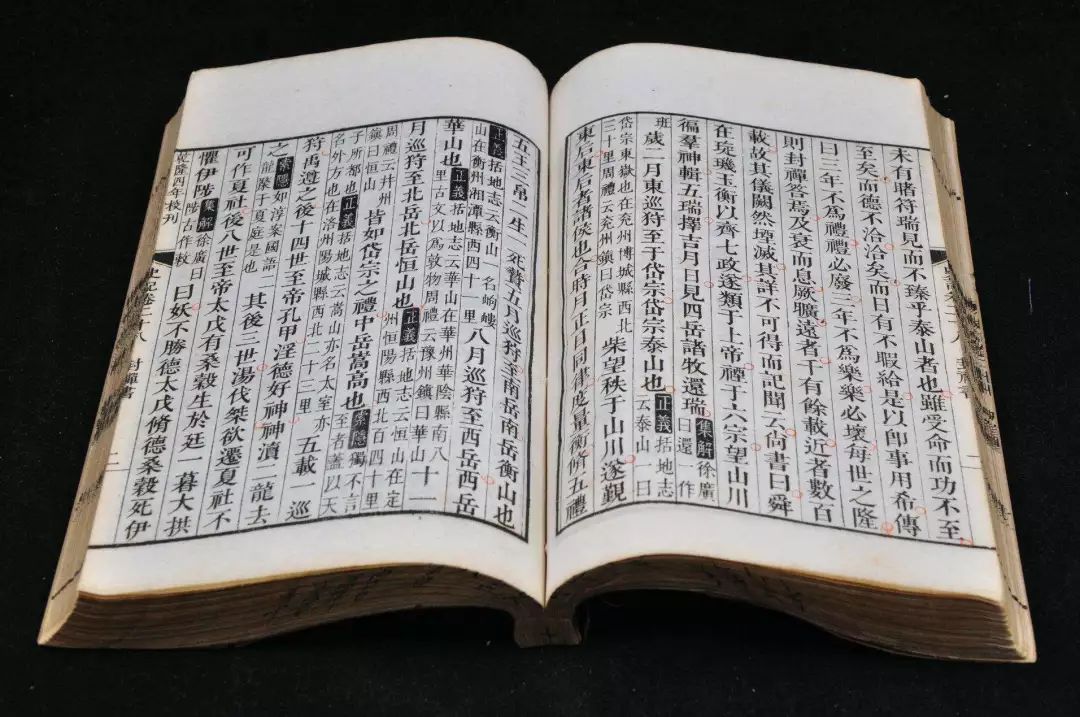 未有睹符瑞見而不臻乎泰山者也雖受命而功不至
至矣而德不洽洽矣而日有不暇給是以卽事用希傳
曰三年不為禮禮必廢三年不為樂樂必壞每世之隆
則封禪答焉及衰而息厥曠遠者千有餘載近者數百
載故其儀闕然堙滅其詳不可得而記聞云尚書曰舜
在琁璣玉衡以齊七政遂類于上帝禋于六宗望山川
徧羣神輯五瑞擇吉月日見四岳諸牧還瑞集解徐廣曰還一作
班歲二月東巡狩至于岱宗岱宗泰山也正義括地志云泰山一曰
岱宗東嶽也在兗州博城縣西北三十里周禮云兗州鎮曰岱宗柴望秩于山川遂覲
東后東后者諸侯也合時月正日同律度量衡脩五禮
五玉三帛二生一死贄五月巡狩至南岳南岳衡山也
正義括地志云衡山一名岣嶁山在衡州湘潭縣西四十一里八月巡狩至西岳西岳
華山也正義括地志云華山在華州華陰縣南八里古文以為敦物周禮云豫州鎮曰華山十一
月巡狩至北岳北岳恒山也正義括地志云恒山在定州恒陽縣西北百四十里
周禮云并州鎮曰恒山皆如岱宗之禮中岳嵩高也索隱獨不言至者蓋以天
子所都也正義括地志云嵩山亦名太室亦名外方也在洛州陽城縣西北二十三里五載一巡
狩禹遵之後十四世至帝孔甲淫德好神神瀆二龍去
之索隱如淳案國語二龍漦于夏庭是也其後三世湯伐桀欲遷夏社不
可作夏社後八世至帝太戊有桑榖生於廷一暮大拱
懼伊陟集解徐廣曰陟古作敕曰妖不勝德太戊脩德桑榖死伊
乾隆四年校刊 史記卷二十八 封禪書 二